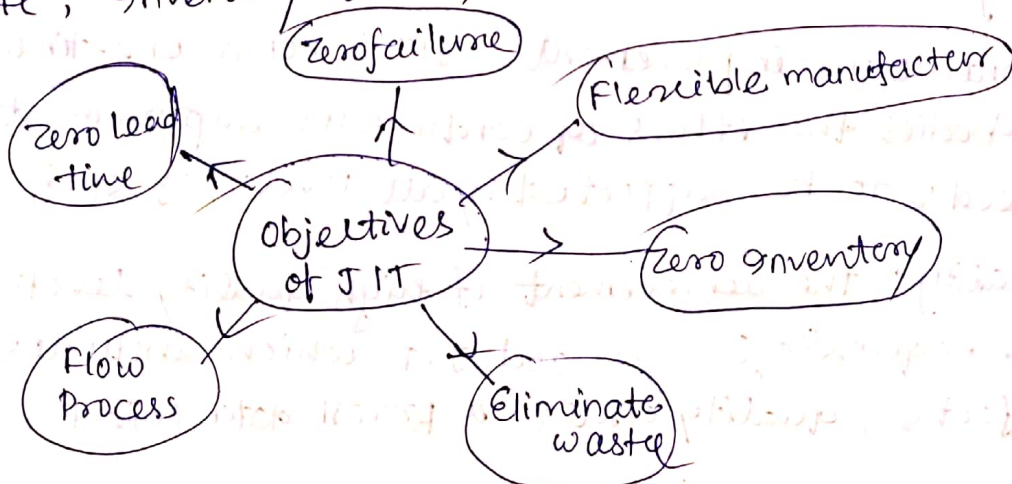 Zero failure
Flexible manufactur
Zero Lead
time
Objectives
of JIT
Zero Inventory
Flow
Process
Eliminate
waste